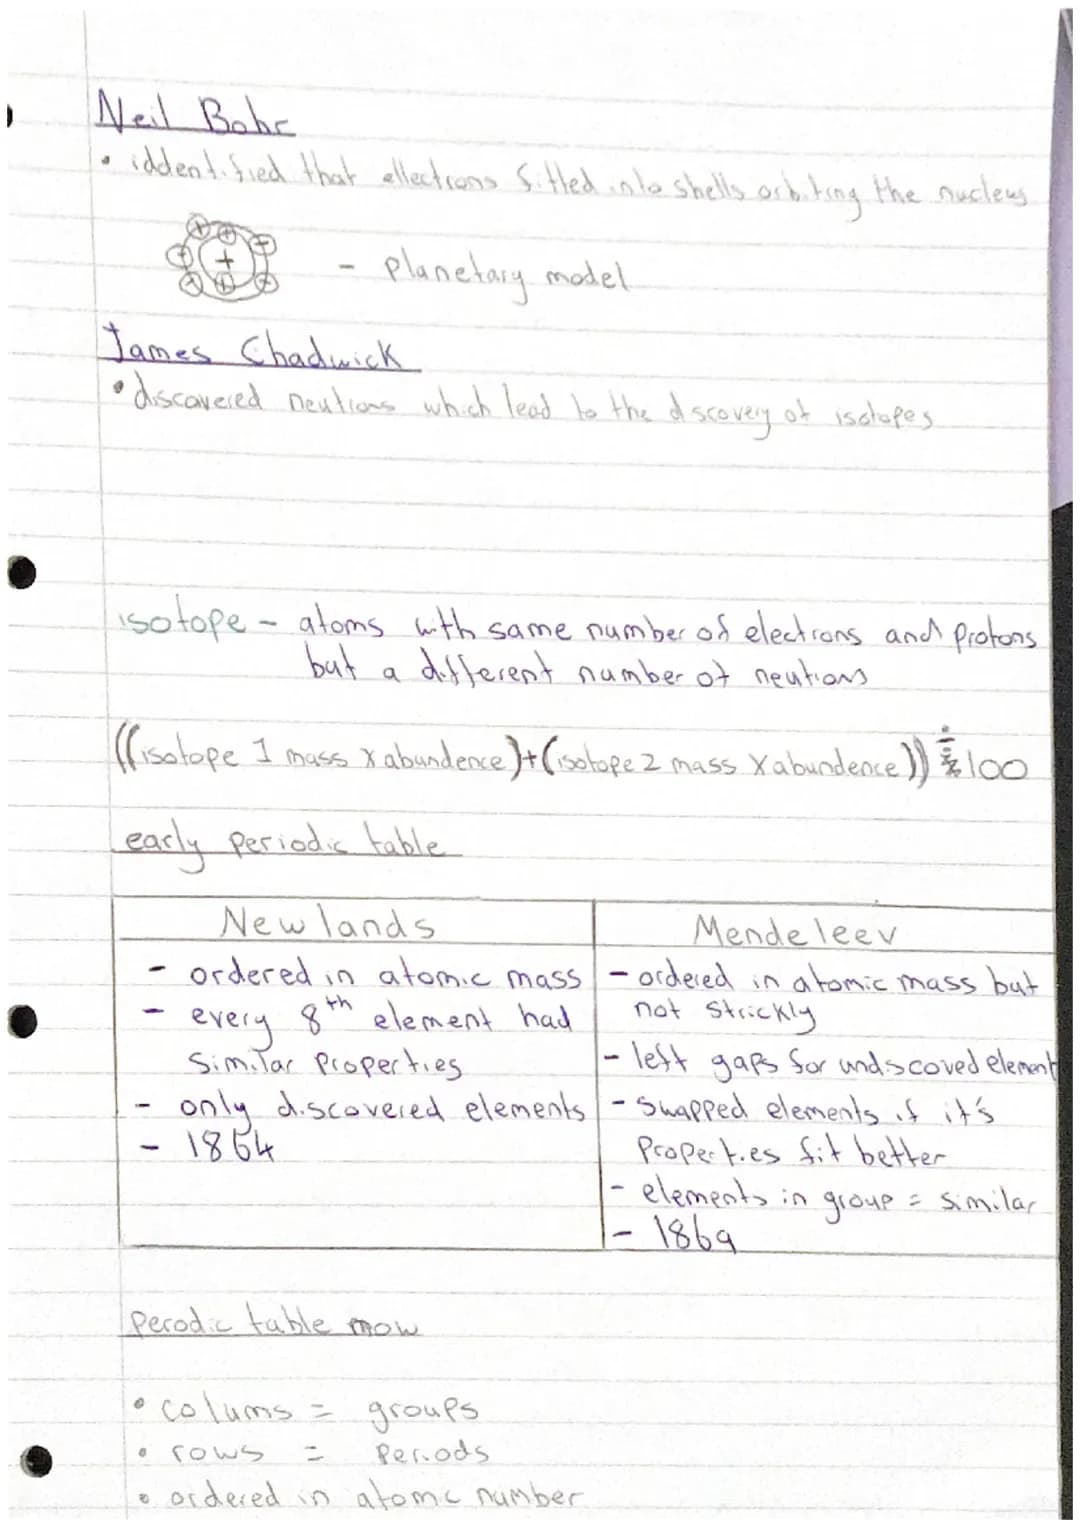 Neil Bohr
• iddentified that ellectrons fitted into shells orbiting the nucleus
+ - planetary model
James Chadwick
• discovered neutrons which lead to the discovery of isotopes
isotope - atoms with same number of electrons and protons
but a different number of neutrons
((isotope 1 mass x abundence)+(isotope 2 mass x abundence)) ÷ 100
early periodic table
Newlands
- ordered in atomic mass
- every 8th element had
similar properties
- only discovered elements
- 1864
Mendeleev
- ordered in atomic mass but
not strickly
- left gaps for undscoved element
- swapped elements if it's
properties fit better
- elements in group = similar
- 1869
perodic table now
• colums = groups
• rows = periods
• ordered in atomc number